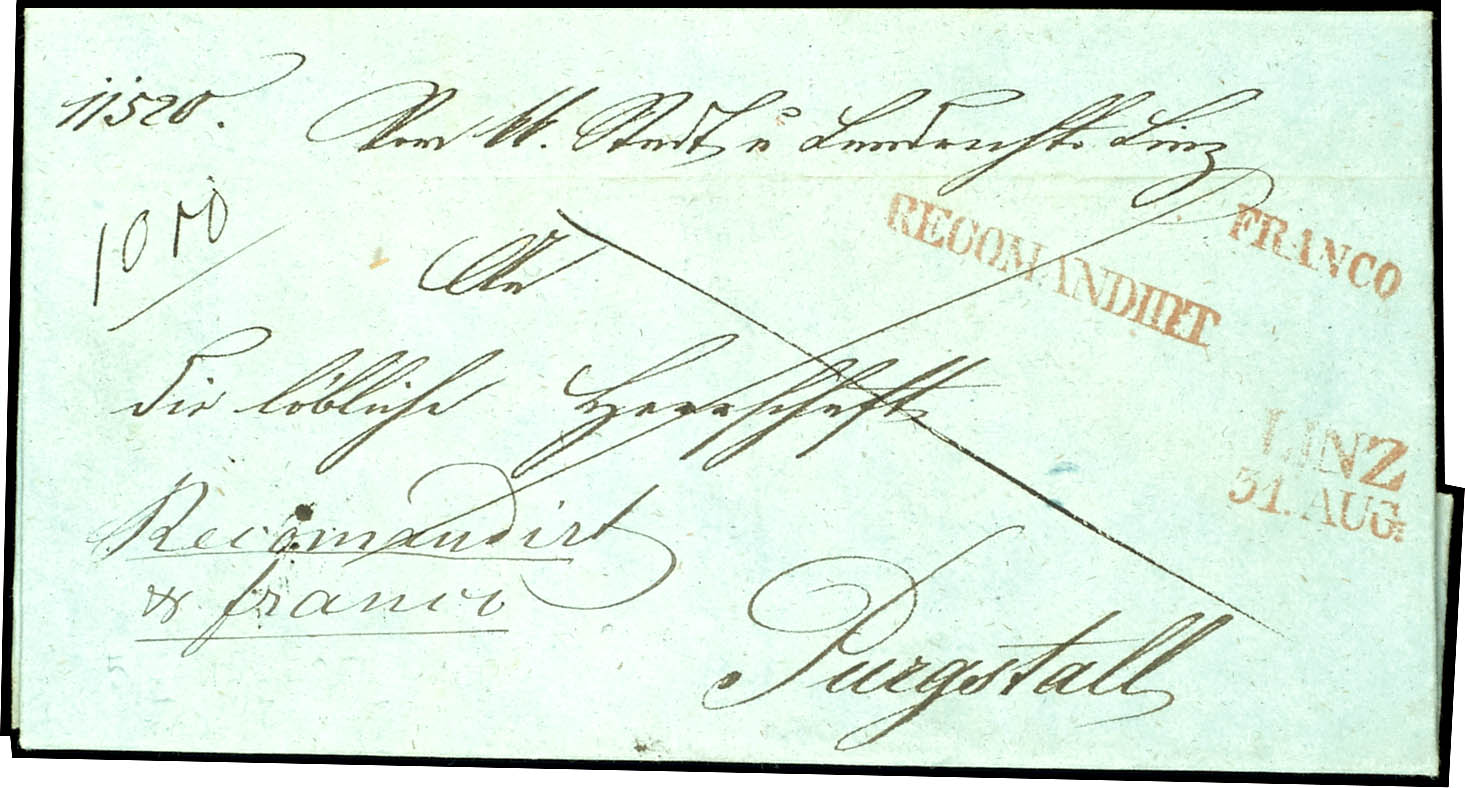 11520.
Vom kk. Stadt u Landrechte Linz
1010
RECOMANDIRT
FRANCO
An
die löbliche Herrschaft
LINZ
31. AUG:
Recomandirt
& franco
Purgstall